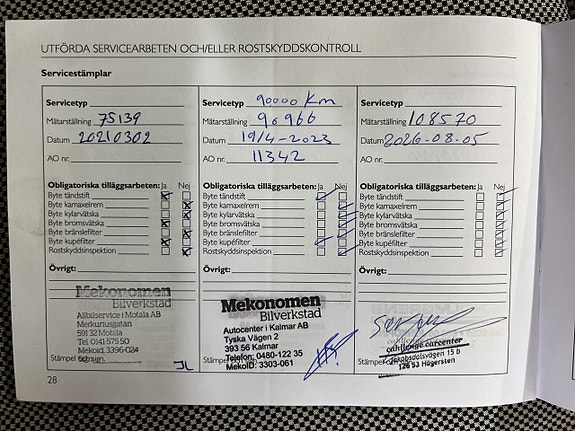 UTFÖRDA SERVICEARBETEN OCH/ELLER ROSTSKYDDSKONTROLL
Servicestämplar
Servicetyp
Mätarställning 75139
Datum 20210302
AO nr.
Obligatoriska tilläggsarbeten: Ja Nej
Byte tändstift
Byte kamaxelrem
Byte kylarvätska
Byte bromsvätska
Byte bränslefilter
Byte kupéfilter
Rostskyddsinspektion
Övrigt:
Mekonomen
Bilverkstad
Allbilservice i Motala AB
Merkuriusgatan
591 32 Motala
Tel. 0141-575 50
MekoId. 3396-024
Stämpel och sign.
JL
Servicetyp 90000 Km
Mätarställning 90966
Datum 19/4-2023
AO nr. 11342
Obligatoriska tilläggsarbeten: Ja Nej
Byte tändstift
Byte kamaxelrem
Byte kylarvätska
Byte bromsvätska
Byte bränslefilter
Byte kupéfilter
Rostskyddsinspektion
Övrigt:
Mekonomen
Bilverkstad
Autocenter i Kalmar AB
Tyska Vägen 2
393 56 Kalmar
Telefon: 0480-122 35
MekoID: 3303-061
Stämpel
Servicetyp
Mätarställning 108570
Datum 2026-08-05
AO nr.
Obligatoriska tilläggsarbeten: Ja Nej
Byte tändstift
Byte kamaxelrem
Byte kylarvätska
Byte bromsvätska
Byte bränslefilter
Byte kupéfilter
Rostskyddsinspektion
Övrigt:
challenge carcenter
Jakobsdalsvägen 15 b
126 53 Hägersten
Stämpel
28